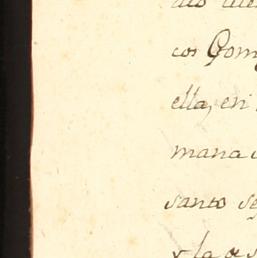 cos Gom
ella, en
mana
santo se
y la